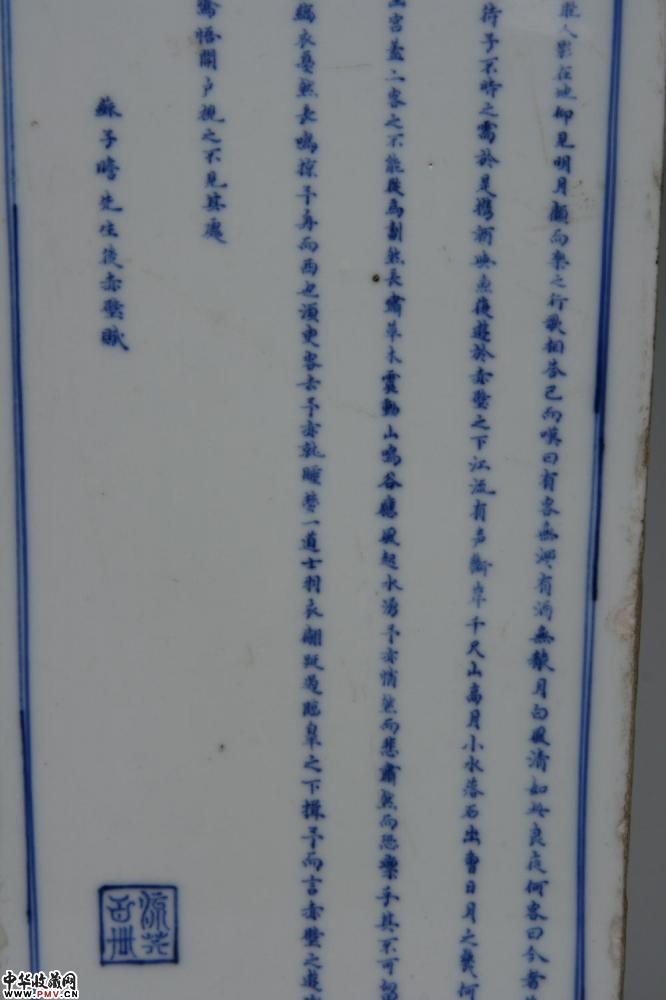 人影在地仰見明月顧而樂之行歌相答已而嘆曰有客無酒有酒無殽月白風清如此良夜何客曰今者
待子不時之需於是携酒與魚復遊於赤壁之下江流有声斷岸千尺山高月小水落石出曾日月之幾何
宮蓋二客之不能從焉劃然長嘯草木震動山鳴谷應風起水湧予亦悄然而悲肅然而恐凜乎其不可留
縞衣戛然長鳴掠予舟而西也須臾客去予亦就睡夢一道士羽衣翩躚過臨皋之下揖予而言赤壁之遊
驚悟開户視之不見其處
蘇子瞻先生後赤壁賦
流芳
中华收藏网
WWW.PMV.CN